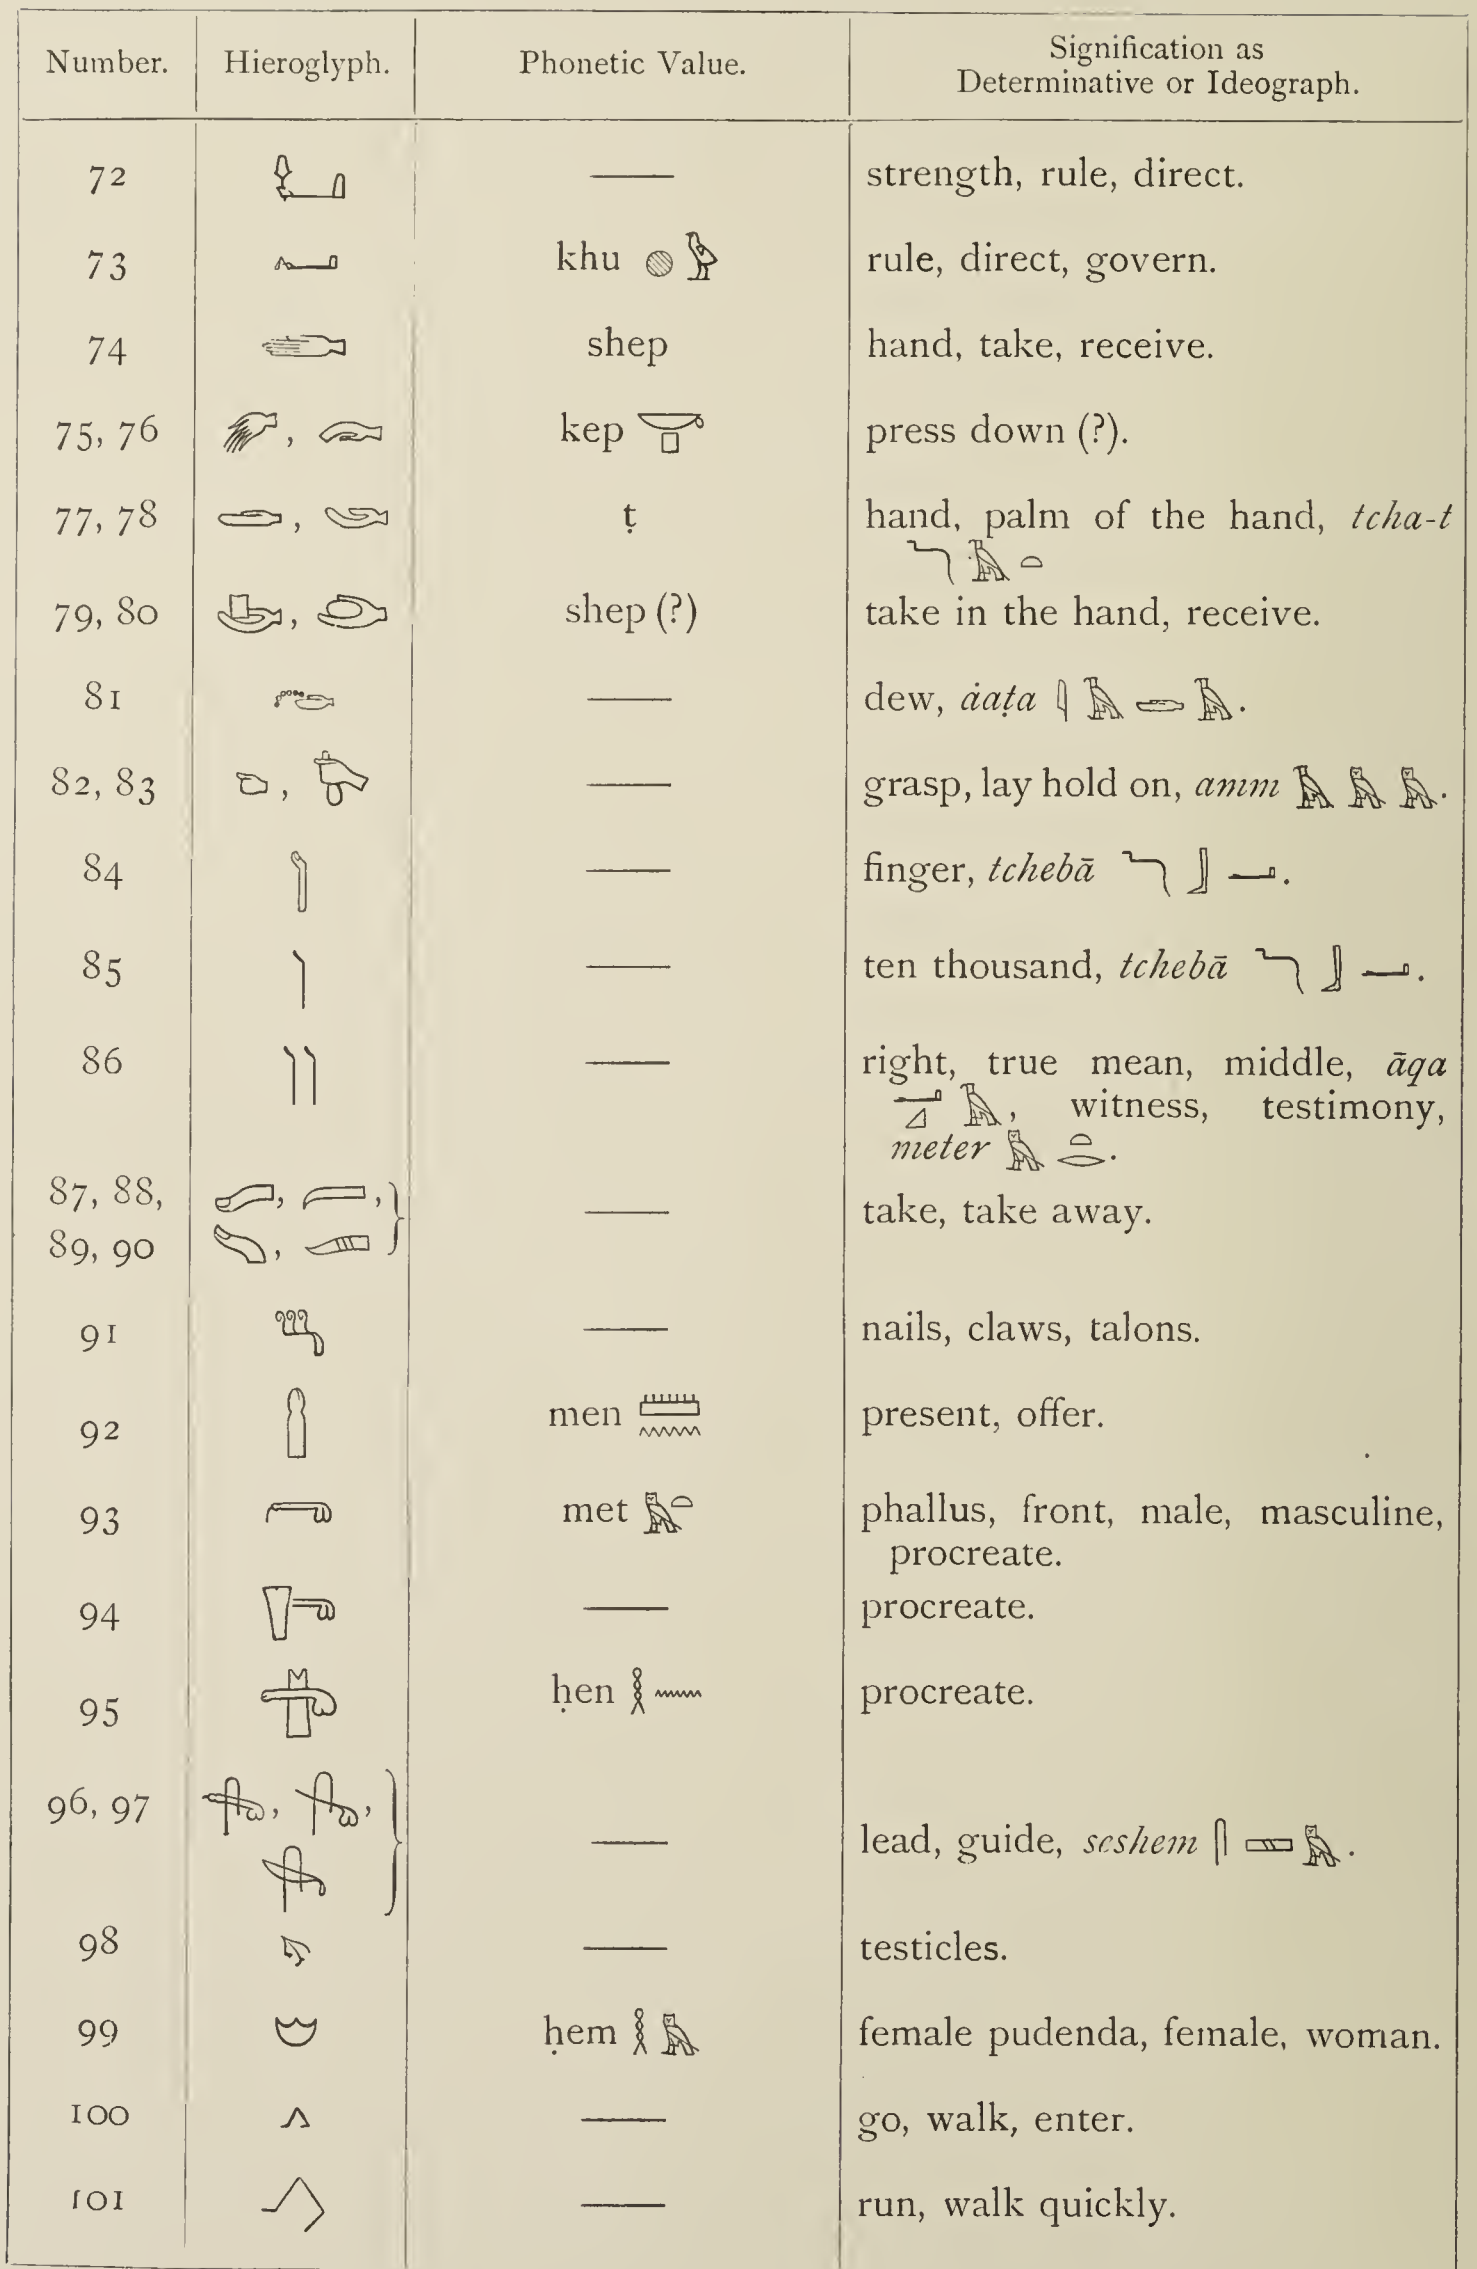 Number. Hieroglyph. Phonetic Value. Signification as
Determinative or Ideograph.
72 — strength, rule, direct.
73 khu rule, direct, govern.
74 shep hand, take, receive.
75, 76 , kep press down (?).
77, 78 , ṭ hand, palm of the hand, tcha-t
79, 80 , shep (?) take in the hand, receive.
81 — dew, ȧaṭa .
82, 83 , — grasp, lay hold on, amm .
84 — finger, tchebā .
85 — ten thousand, tchebā .
86 — right, true mean, middle, āqa
, witness, testimony,
meter .
87, 88, , , — take, take away.
89, 90 ,
91 — nails, claws, talons.
92 men present, offer.
93 met phallus, front, male, masculine,
procreate.
94 — procreate.
95 ḥen procreate.
96, 97 , , — lead, guide, seshem .
98 — testicles.
99 ḥem female pudenda, female, woman.
100 — go, walk, enter.
101 — run, walk quickly.